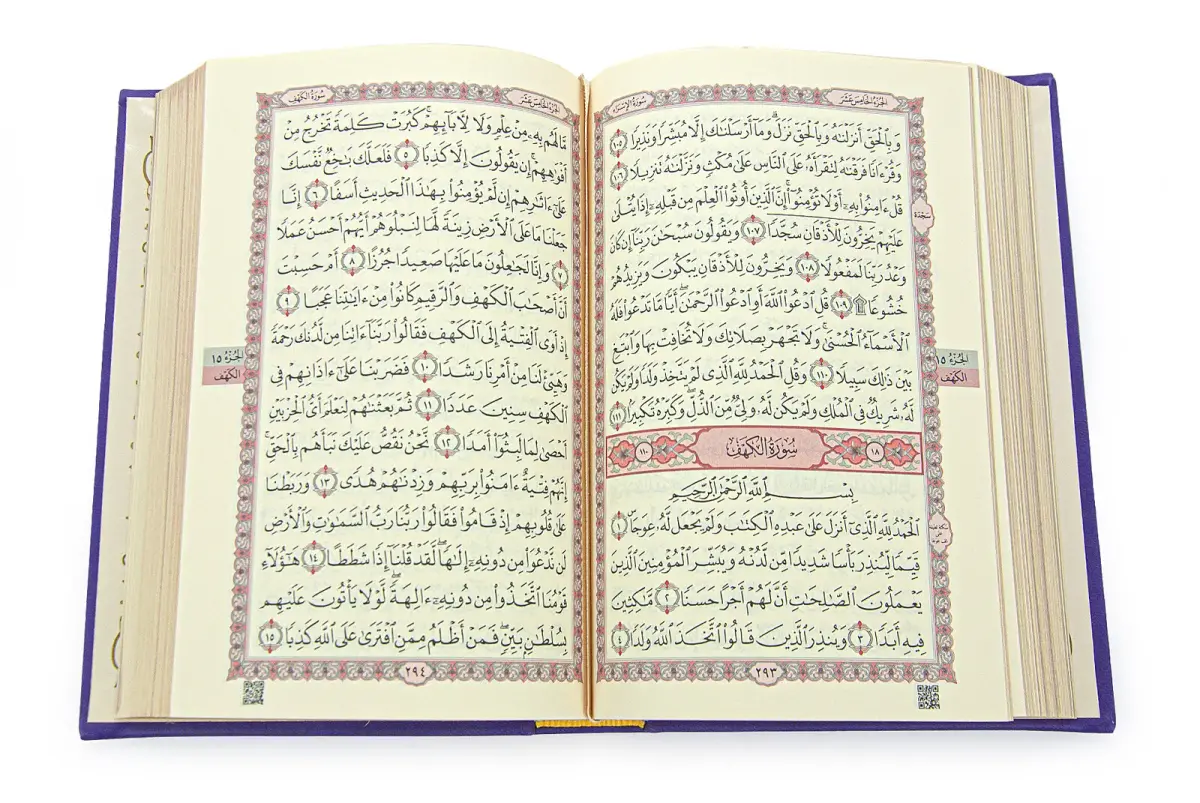 الجزء الخامس عشر
سورة الإسراء
وَبِالْحَقِّ أَنزَلْنَاهُ وَبِالْحَقِّ نَزَلَ وَمَا أَرْسَلْنَاكَ إِلَّا مُبَشِّرًا وَنَذِيرًا ١٠٥
وَقُرْءَانًا فَرَقْنَاهُ لِتَقْرَأَهُ عَلَى النَّاسِ عَلَى مُكْثٍ وَنَزَّلْنَاهُ تَنزِيلًا ١٠٦
قُلْ ءَامِنُوا بِهِ أَوْ لَا تُؤْمِنُوا إِنَّ الَّذِينَ أُوتُوا الْعِلْمَ مِن قَبْلِهِ إِذَا يُتْلَى
عَلَيْهِمْ يَخِرُّونَ لِلْأَذْقَانِ سُجَّدًا ١٠٧ وَيَقُولُونَ سُبْحَانَ رَبِّنَا إِن كَانَ
وَعْدُ رَبِّنَا لَمَفْعُولًا ١٠٨ وَيَخِرُّونَ لِلْأَذْقَانِ يَبْكُونَ وَيَزِيدُهُمْ
خُشُوعًا ۩ ١٠٩ قُلِ ادْعُوا اللَّهَ أَوِ ادْعُوا الرَّحْمَنَ أَيًّا مَّا تَدْعُوا فَلَهُ
الْأَسْمَاءُ الْحُسْنَى وَلَا تَجْهَرْ بِصَلَاتِكَ وَلَا تُخَافِتْ بِهَا وَابْتَغِ
بَيْنَ ذَالِكَ سَبِيلًا ١١٠ وَقُلِ الْحَمْدُ لِلَّهِ الَّذِي لَمْ يَتَّخِذْ وَلَدًا وَلَمْ يَكُن
لَّهُ شَرِيكٌ فِي الْمُلْكِ وَلَمْ يَكُن لَّهُ وَلِيٌّ مِّنَ الذُّلِّ وَكَبِّرْهُ تَكْبِيرًا ١١١
١٨ سُورَةُ الْكَهْفِ ١١٠
بِسْمِ اللَّهِ الرَّحْمَنِ الرَّحِيمِ
الْحَمْدُ لِلَّهِ الَّذِي أَنزَلَ عَلَى عَبْدِهِ الْكِتَابَ وَلَمْ يَجْعَل لَّهُ عِوَجًا ١
قَيِّمًا لِّيُنذِرَ بَأْسًا شَدِيدًا مِّن لَّدُنْهُ وَيُبَشِّرَ الْمُؤْمِنِينَ الَّذِينَ
يَعْمَلُونَ الصَّالِحَاتِ أَنَّ لَهُمْ أَجْرًا حَسَنًا ٢ مَّاكِثِينَ
فِيهِ أَبَدًا ٣ وَيُنذِرَ الَّذِينَ قَالُوا اتَّخَذَ اللَّهُ وَلَدًا ٤
سجدة
الجزء ١٥
الكهف
٢٩٣
الجزء الخامس عشر
سورة الكهف
مَّا لَهُم بِهِ مِنْ عِلْمٍ وَلَا لِآبَائِهِمْ كَبُرَتْ كَلِمَةً تَخْرُجُ مِنْ
أَفْوَاهِهِمْ إِن يَقُولُونَ إِلَّا كَذِبًا ٥ فَلَعَلَّكَ بَاخِعٌ نَّفْسَكَ
عَلَى ءَاثَارِهِمْ إِن لَّمْ يُؤْمِنُوا بِهَاذَا الْحَدِيثِ أَسَفًا ٦ إِنَّا
جَعَلْنَا مَا عَلَى الْأَرْضِ زِينَةً لَّهَا لِنَبْلُوَهُمْ أَيُّهُمْ أَحْسَنُ عَمَلًا
٧ وَإِنَّا لَجَاعِلُونَ مَا عَلَيْهَا صَعِيدًا جُرُزًا ٨ أَمْ حَسِبْتَ
أَنَّ أَصْحَابَ الْكَهْفِ وَالرَّقِيمِ كَانُوا مِنْ ءَايَاتِنَا عَجَبًا ٩
إِذْ أَوَى الْفِتْيَةُ إِلَى الْكَهْفِ فَقَالُوا رَبَّنَا ءَاتِنَا مِن لَّدُنكَ رَحْمَةً
وَهَيِّئْ لَنَا مِنْ أَمْرِنَا رَشَدًا ١٠ فَضَرَبْنَا عَلَى ءَاذَانِهِمْ فِي
الْكَهْفِ سِنِينَ عَدَدًا ١١ ثُمَّ بَعَثْنَاهُمْ لِنَعْلَمَ أَيُّ الْحِزْبَيْنِ
أَحْصَى لِمَا لَبِثُوا أَمَدًا ١٢ نَّحْنُ نَقُصُّ عَلَيْكَ نَبَأَهُم بِالْحَقِّ
إِنَّهُمْ فِتْيَةٌ ءَامَنُوا بِرَبِّهِمْ وَزِدْنَاهُمْ هُدًى ١٣ وَرَبَطْنَا
عَلَى قُلُوبِهِمْ إِذْ قَامُوا فَقَالُوا رَبُّنَا رَبُّ السَّمَاوَاتِ وَالْأَرْضِ
لَن نَّدْعُوَا مِن دُونِهِ إِلَاهًا لَّقَدْ قُلْنَا إِذًا شَطَطًا ١٤ هَاؤُلَاءِ
قَوْمُنَا اتَّخَذُوا مِن دُونِهِ ءَالِهَةً لَّوْلَا يَأْتُونَ عَلَيْهِم
بِسُلْطَانٍ بَيِّنٍ فَمَنْ أَظْلَمُ مِمَّنِ افْتَرَى عَلَى اللَّهِ كَذِبًا ١٥
الجزء ١٥
الكهف
٢٩٤